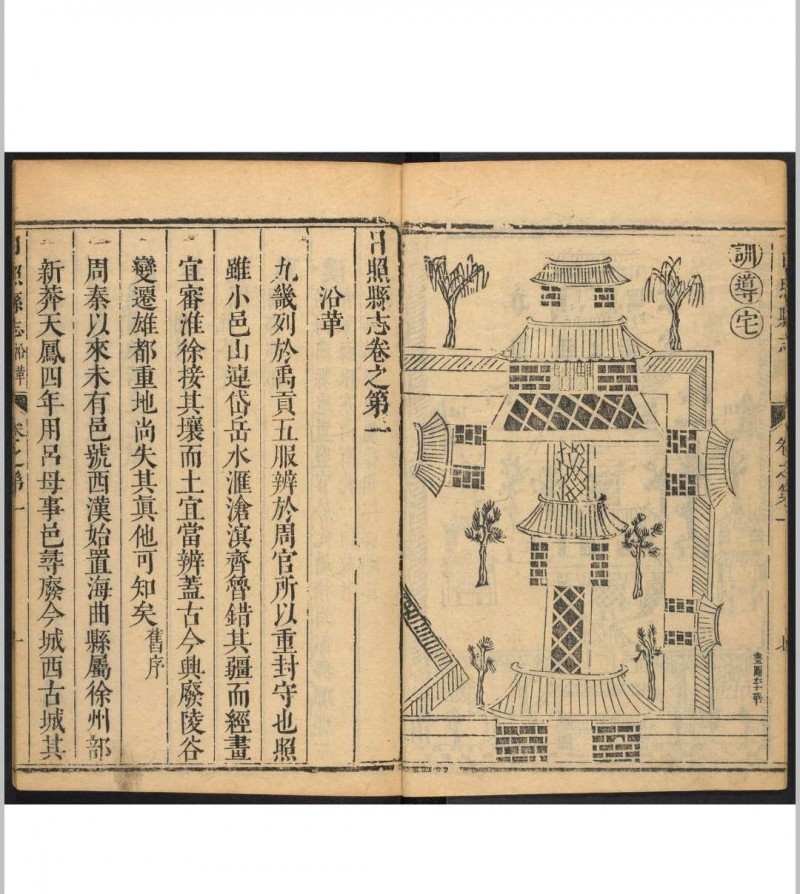 訓導宅
日照縣志卷之第一
沿革
九畿列於禹貢五服辨於周官所以重封守也照
雖小邑山連岱岳水滙滄溟齊魯錯其疆而經畫
宜審淮徐接其壤而土宜當辨蓋古今興廢陵谷
變遷雄都重地尚失其眞他可知矣舊序
周秦以來未有邑號西漢始置海曲縣屬徐州部
新莽天鳳四年用呂母事邑尋廢今城西古城其
日照縣志 沿革 卷之第一